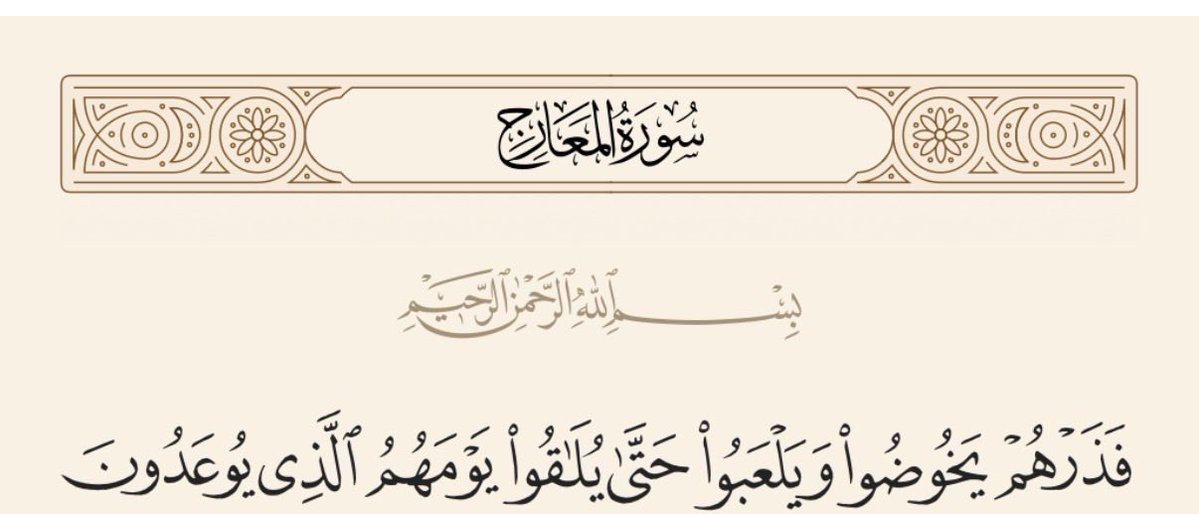 سُورَةُ المَعَارِج
بِسْمِ ٱللَّهِ ٱلرَّحْمَٰنِ ٱلرَّحِيمِ
فَذَرْهُمْ يَخُوضُوا۟ وَيَلْعَبُوا۟ حَتَّىٰ يُلَـٰقُوا۟ يَوْمَهُمُ ٱلَّذِى يُوعَدُونَ